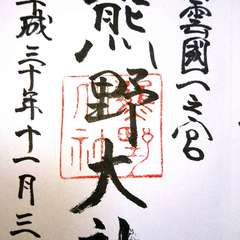 雲國一之宮
熊野大社
平成三十年十一月三